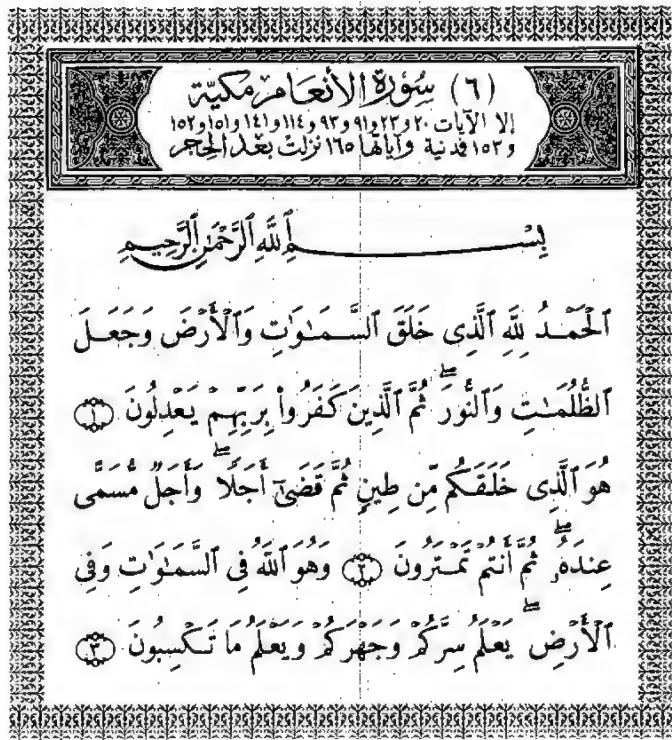 (٦) سُورَة الأنعَام مكيّة
إلا الآيات ٢٠ و٢٣ و٩١ و٩٣ و١١٤ و١٤١ و١٥١ و١٥٢
و١٥٣ فمدنية وآياتها ١٦٥ نزلت بعد الحجر
بِسْمِ ٱللَّهِ ٱلرَّحْمَٰنِ ٱلرَّحِيمِ
ٱلْحَمْدُ لِلَّهِ ٱلَّذِى خَلَقَ ٱلسَّمَٰوَٰتِ وَٱلْأَرْضَ وَجَعَلَ
ٱلظُّلُمَٰتِ وَٱلنُّورَۖ ثُمَّ ٱلَّذِينَ كَفَرُوا۟ بِرَبِّهِمْ يَعْدِلُونَ ١
هُوَ ٱلَّذِى خَلَقَكُم مِّن طِينٍ ثُمَّ قَضَىٰٓ أَجَلًاۖ وَأَجَلٌ مُّسَمًّى
عِندَهُۥۖ ثُمَّ أَنتُمْ تَمْتَرُونَ ٢ وَهُوَ ٱللَّهُ فِى ٱلسَّمَٰوَٰتِ وَفِى
ٱلْأَرْضِۖ يَعْلَمُ سِرَّكُمْ وَجَهْرَكُمْ وَيَعْلَمُ مَا تَكْسِبُونَ ٣